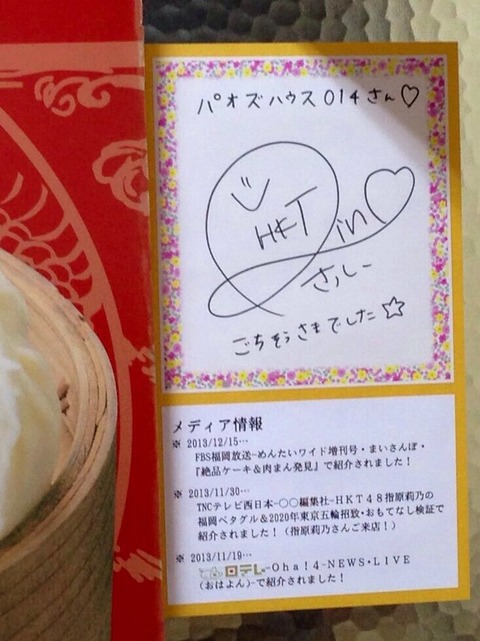 パオズハウス014さん♡
HKT
in
さしー
ごちそうさまでした☆
メディア情報
※ 2013/12/15…
FBS福岡放送-めんたいワイド増刊号・まいさんぽ・
『絶品ケーキ＆肉まん発見』で紹介されました！
※ 2013/11/30…
TNCテレビ西日本-〇〇編集社-HKT48指原莉乃の
福岡ベタグル＆2020年東京五輪招致・おもてなし検証で
紹介されました！（指原莉乃さんご来店！）
※ 2013/11/19…
日テレ-Oha！4-NEWS・LIVE
（おはよん）-で紹介されました！